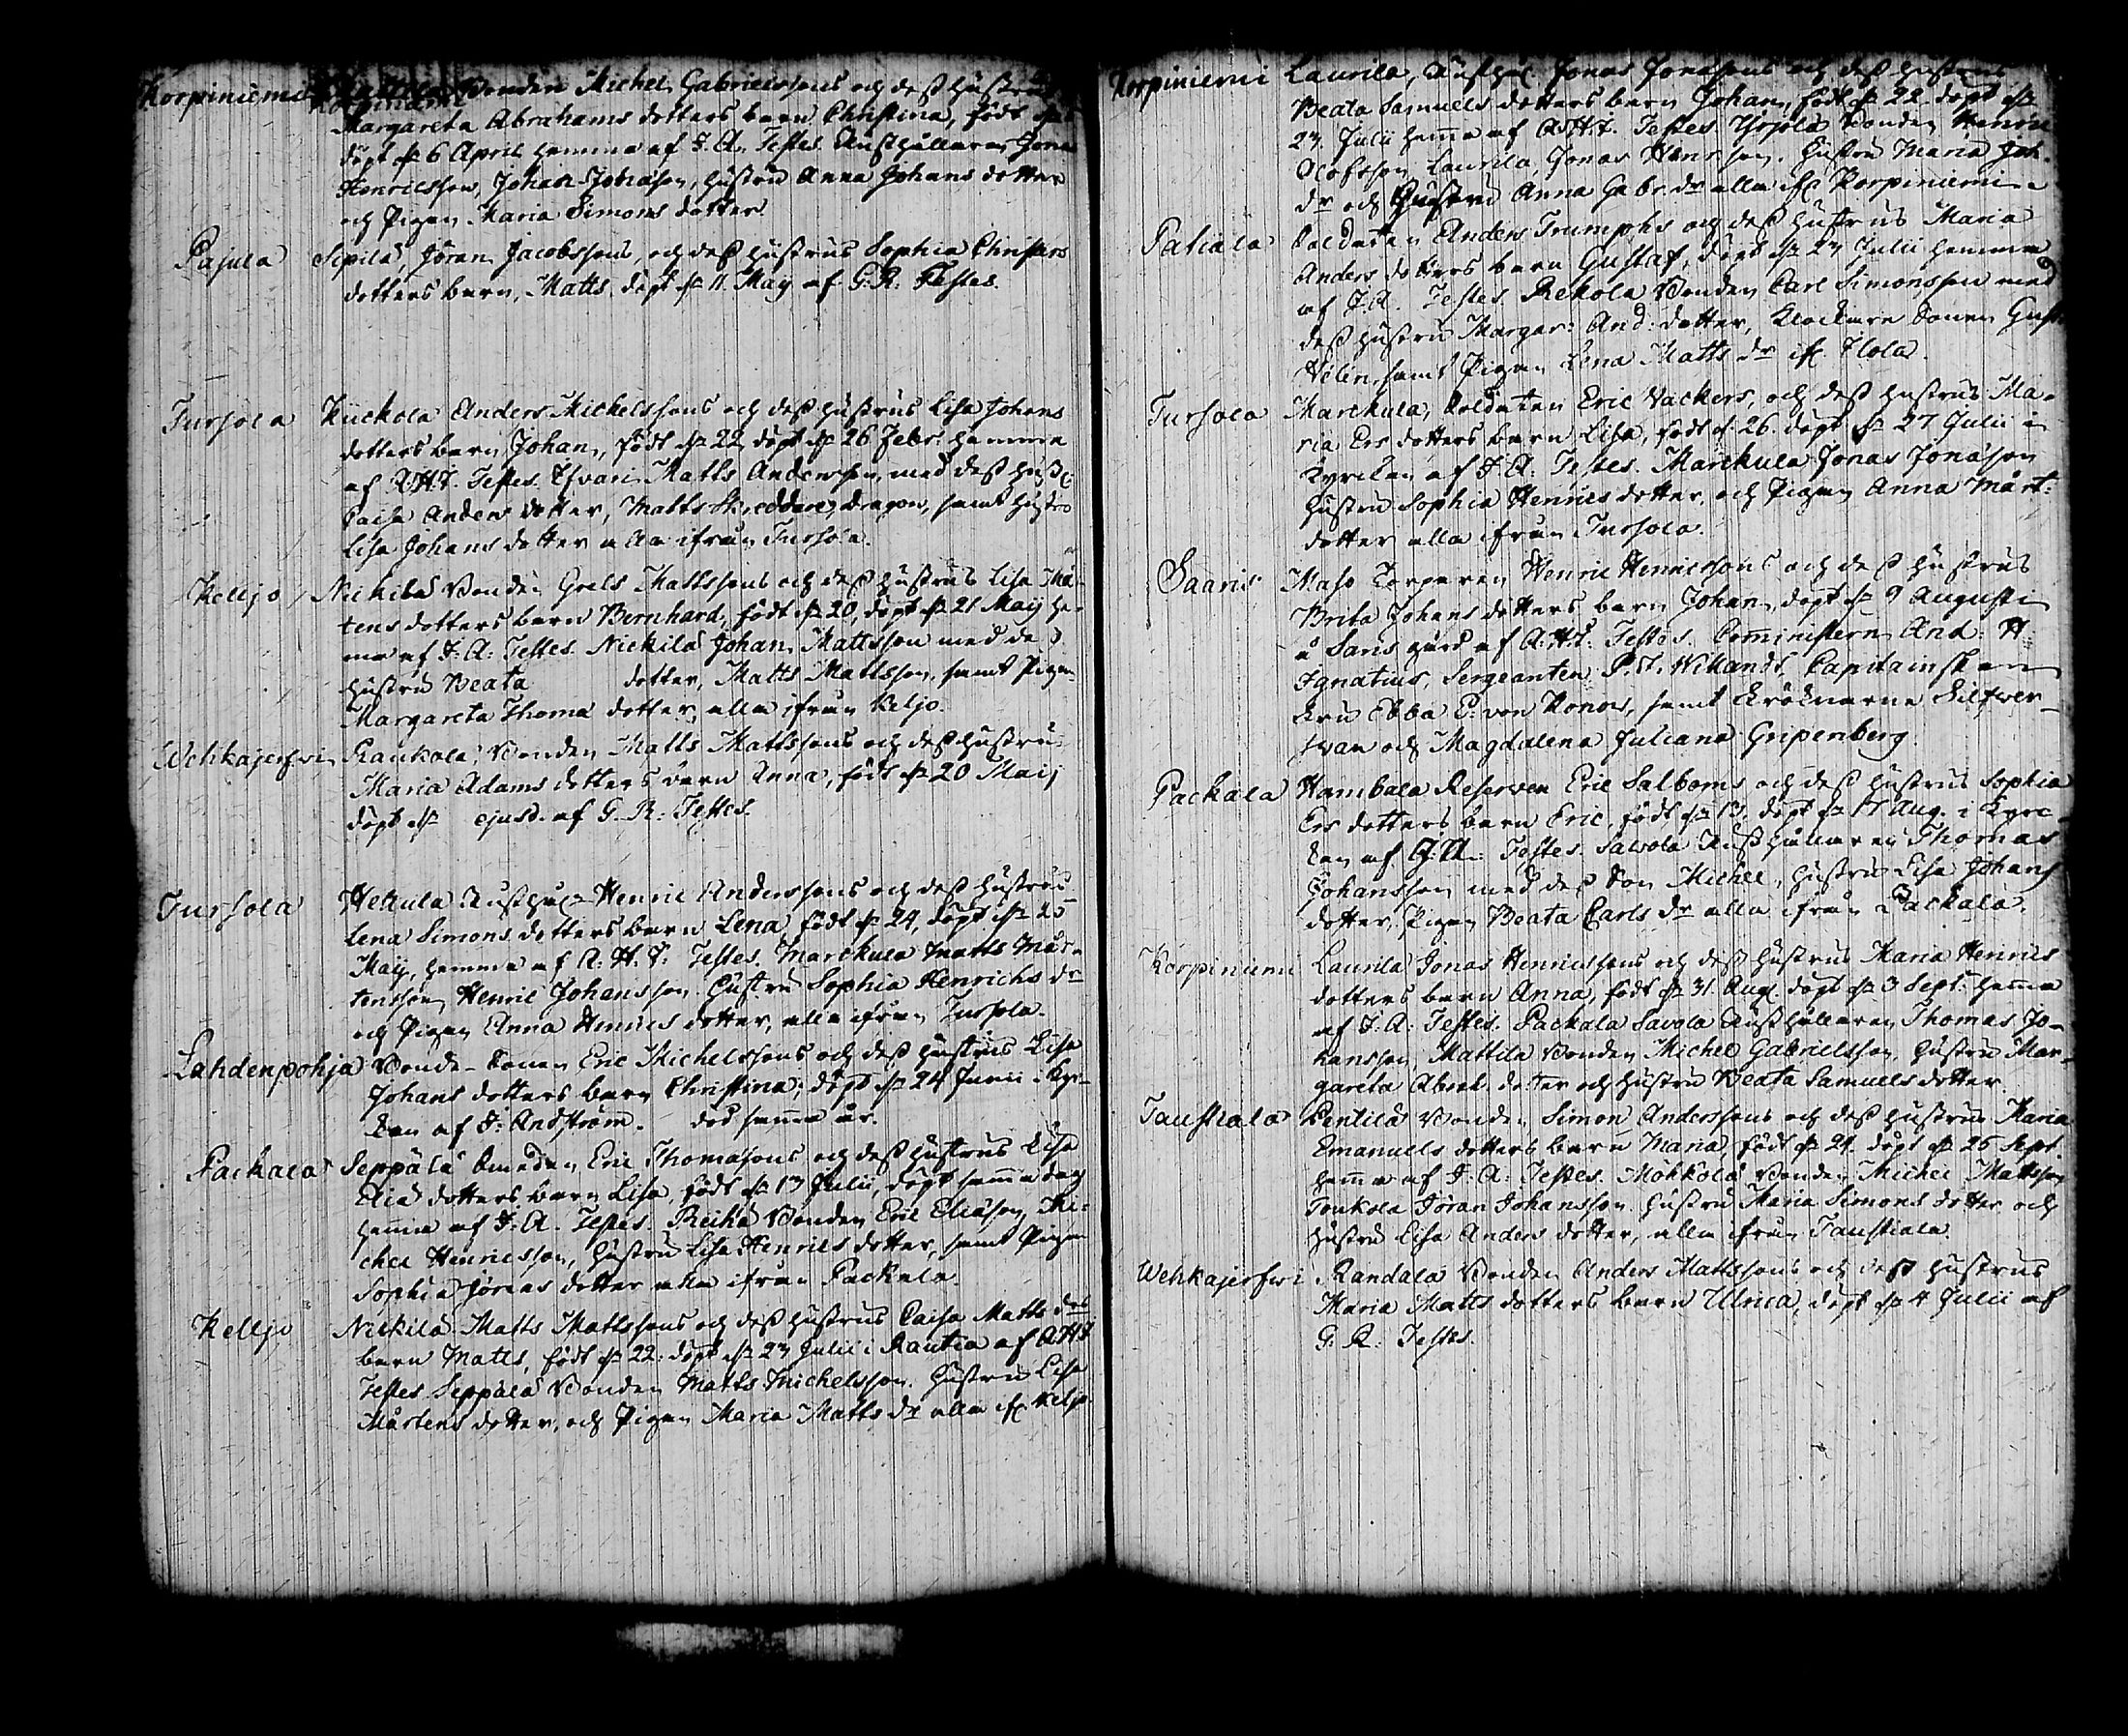 Korpiniemi Mattila Bonden Michel Gabrielssons och dess hustrus
Margareta Abrahams dotters barn Christina, födt
döpt d. 6 April hemma af J. A. Testes Rusthållaren Jonas
Henricsson, Johan Johansson, hustru Anna Johans dotter
och Pigan Maria Simons dotter
Pajula Sipilä, Jöran Jacobssons, och dess hustrus Sophia Christers
dotters barn, Matts, döpt d. 11 May af G. R. Testes.
Tursola Kuckola Anders Michelssons och dess hustrus Lisa Johans
dotters barn Johan, födt d. 22 döpt d. 26 Febr. hemma
af A.H.I. Testes. Matts Andersson, med dess hust.
Caisa Anders dotter, Matts Skreddare, dragon, samt hustru
Lisa Johans dotter alla ifrån Tursola.
Kelljo Nickilä Bonden Grels Mattssons och dess hustrus Lisa Mår-
tens dotters barn Bernhard, födt d. 20, döpt d. 21 Maij he-
ma af J. A. Testes. Nickilä Johan Mattsson med dess
hustru Beata dotter, Matts Mattsson, samt Pigan
Margareta Thoma dotter, alla ifrån Keljo.
Wehkajerfwi Raukola, Bonden Matts Mattssons och dess hustru
Maria Adams dotters barn Anna, födt d. 20 Maij
döpt d. ejusd. af G. R. Testes.
Tursola Heikula Rusth. Henric Anderssons och dess hustrus
Lena Simons dotters barn Lena födt d. 24, döpt d. 25
Maij, hemma af A. H. I. Testes. Marckula Matts Mår-
tensson, Henric Johansson. Hustru Sophia Henrichs dr
och Pigan Anna Henrics dotter, alla ifrån Tursola.
Lahdenpohja Bonde-Sonen Eric Michelssons och dess hustrus Lisa
Johans dotters barn Christina, döpt d. 24 Junii i Kyr-
kan af J. Andström. död samma år.
Packala Seppälä Smeden Eric Thomassons och dess hustrus Lisa
Eliä dotters barn Lisa, födt d. 17 Julii, döpt samma dag
hemma af J. A. Testes. Reikä Bonden Eric Eliasson, Mi-
chel Henricsson, Hustru Lisa Henrics dotter, samt Pigan
Sophia Jörans dotter alla ifrån Packala.
Kelljo Nickilä Matts Mattssons och dess hustrus Caisa Matts drs
barn Matts, födt d. 22. döpt d. 27 Julii i Rautia af AHI
Testes Seppälä Bonden Matts Michelsson. Hustru Lisa
Mårtens dotter, och Pigan Maria Matts dr alla if. Keljo
Korpiniemi Laurila, Rusth. Jonas Jonassons och dess hustrus
Beata Samuels dotters barn Johan, födt d. 22. döpt d.
27. Julii hemma af A.H.I. Testes Yrjölä Bonden Henric
Olofsson, Laurila, Jonas Henrsson. Hustru Maria Joh.
dr och Hustru Anna Gabr. dr alla if. Korpiniemi
Patiala Soldaten Anders Trumphs och dess hustrus Maria
Anders dotters barn Gustaf, döpt d. 27 Julii hemma
af J. A. Testes. Rekola Bonden Carl Simonsson med
dess hustru Margar: And: dotter, Klockare Sonen Gust.
Helin, samt Pigan Lena Matts dr if. Flola.
Tursola Marckula, Soldaten Eric Vackers, och dess hustrus Ma-
ria Ers dotters barn Lisa, födt d. 26. döpt d. 27 Julii i
Kyrckan af J. A: Testes. Marckula Jonas Jonasson
Hustru Sophia Henrics dotter, och Pigan Anna Mårt:
dotter alla ifrån Tursola.
Saaris Maso Torparen Henric Henricssons och dess hustrus
Brita Johans dotters barn Johan, döpt d. 9 Augusti
å Saris gård af A.H.I. Testes. Comministern And: H:
Ignatius, Sergeanten P. F. Wikandt, Capitainskan
Fru Ebba E: von Konow, samt Fröknarne Silfwer-
swan och Magdalena Juliana Gripenberg.
Packala Hambala Reserven Eric Salboms och dess hustrus Sophia
Ers dotters barn Eric, födt d. 13. döpt d. 17 Aug. i Kyrc-
kan af J. A: Testes. Savola Rusthållaren Thomas
Johansson med dess Son Michel, hustru Lisa Johans
dotter, Pigan Beata Carls dr alla ifrån Packala.
Korpiniemi Laurila Jonas Henricssons och dess hustrus Maria Henrics
dotters barn Anna, födt d. 31. Aug. döpt d. 3 Sept: hemma
af J. A: Testes. Packala Savola Rusthållaren Thomas Jo-
hansson, Mattila Bonden Michel Gabrielsson, Hustru Mar-
gareta Abrah. dotter och hustru Beata Samuels dotter.
Taustiala Pentilä Bonden Simon Anderssons och dess hustrus Maria
Emanuels dotters barn Maria, födt d. 24. döpt d. 25 Sept
hemma af J. A: Testes. Mokkola Bonden Michel Mattsson
Toukola Jöran Johansson. hustru Maria Simons dotter och
hustru Lisa Anders dotter, alla ifrån Taustiala.
Wehkajerfwi Randala Bonden Anders Mattssons och dess hustrus
Maria Matts dotters barn Ulrica, döpt d. 4 Julii af
G. R: Testes.